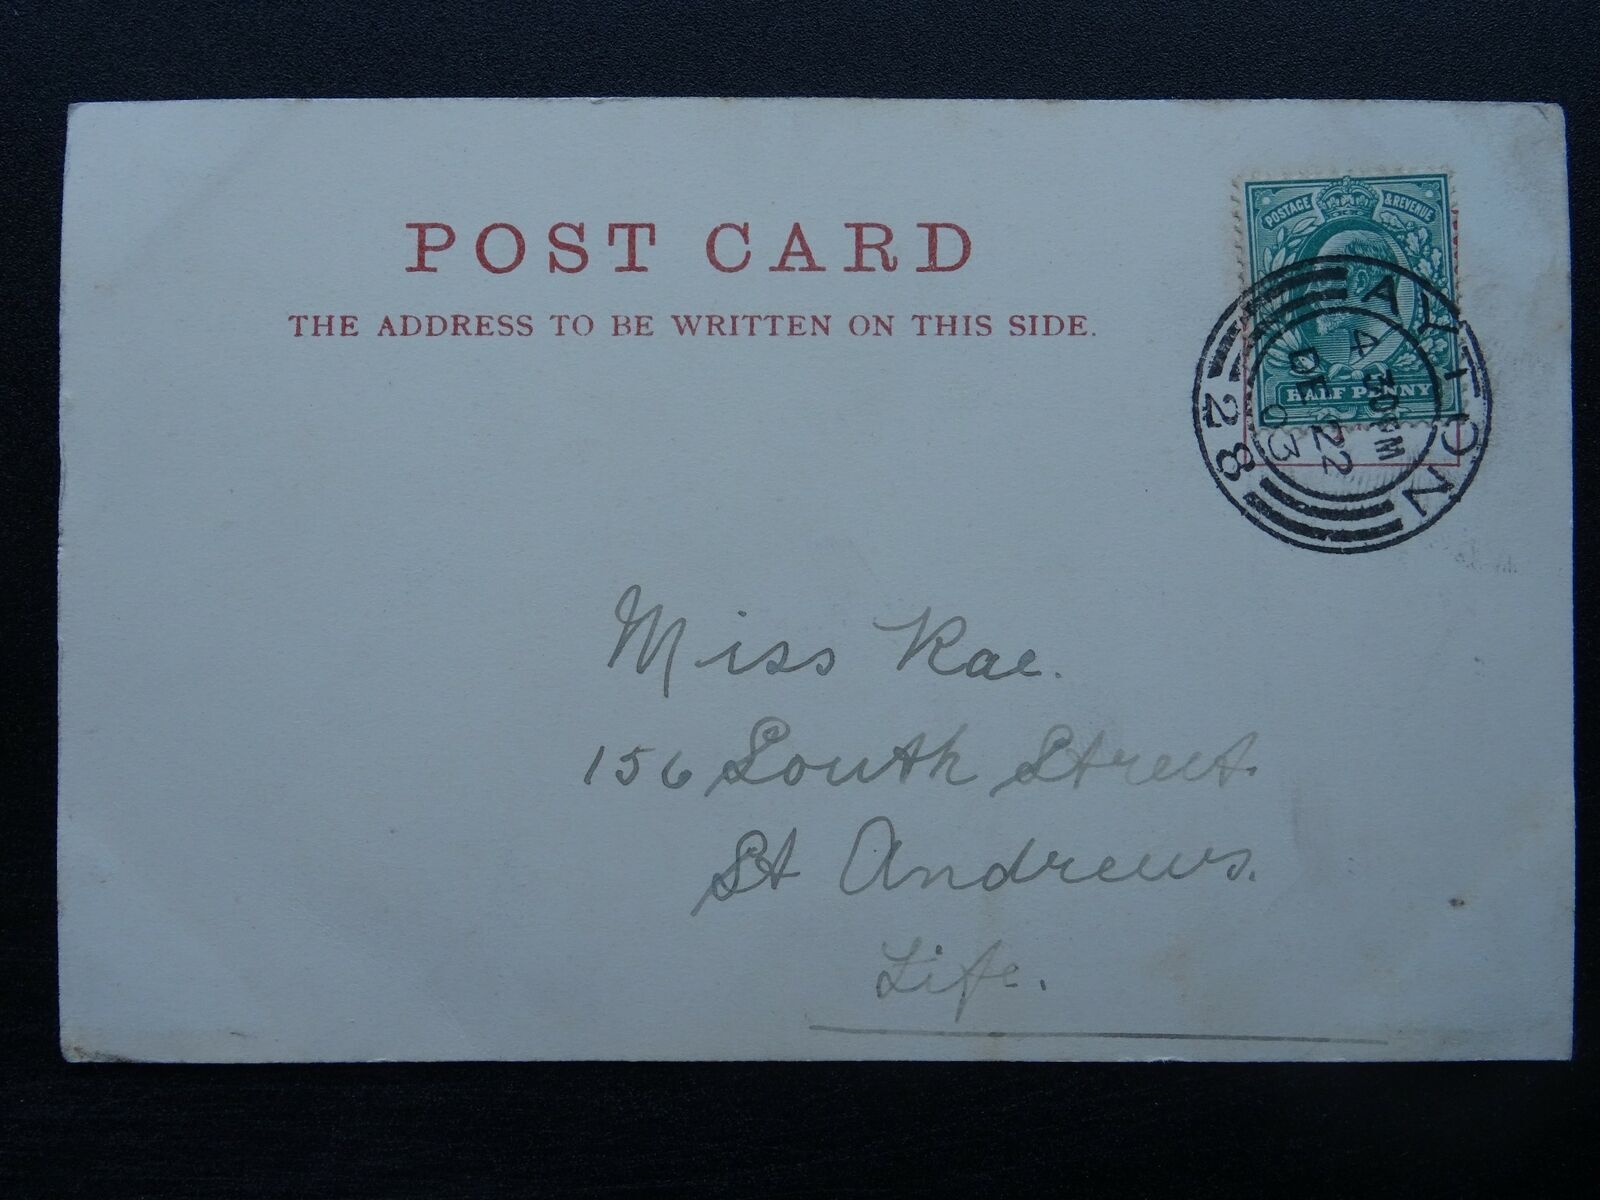 POST CARD
THE ADDRESS TO BE WRITTEN ON THIS SIDE.
POSTAGE & REVENUE
HALF PENNY
AYTON
4 30PM
DE 22
03
28
Miss Rae.
156 South Street.
St Andrews.
Fife.